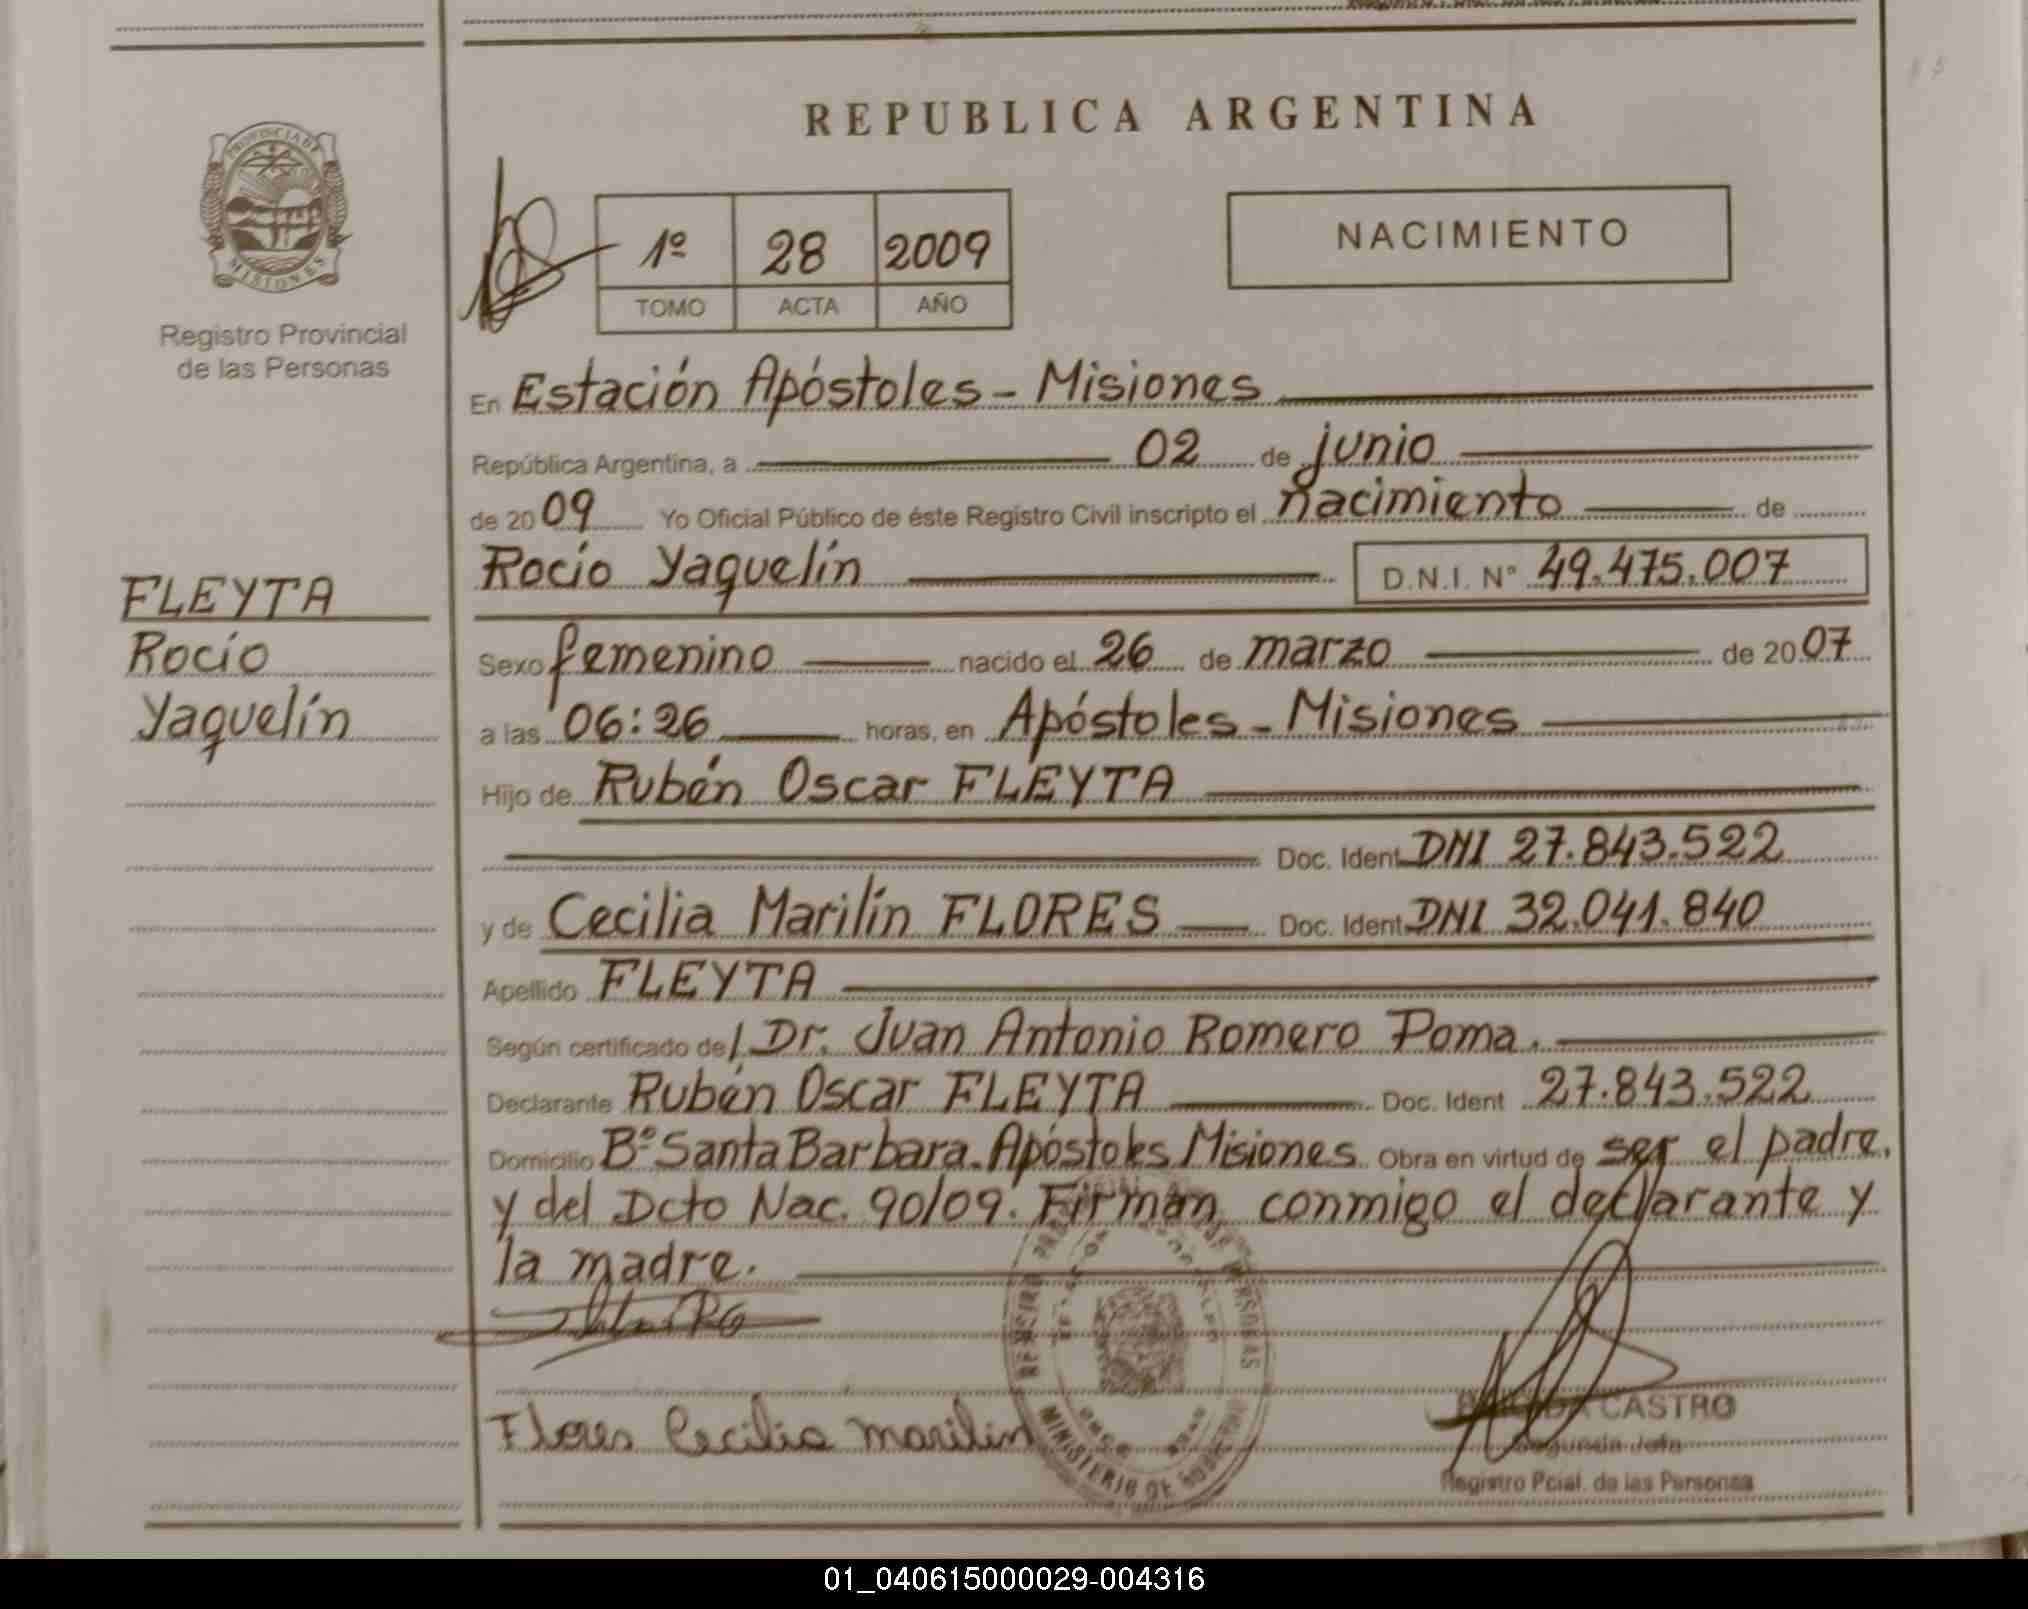 REPUBLICA ARGENTINA
PROVINCIA DE
MISIONES
Registro Provincial
de las Personas
1º 28 2009
TOMO ACTA AÑO
NACIMIENTO
En Estación Apóstoles - Misiones
República Argentina, a 02 de junio
de 2009 Yo Oficial Público de éste Registro Civil inscripto el nacimiento de
Rocío Yaquelín D.N.I. Nº 49.475.007
FLEYTA
Rocío
Yaquelín
Sexo femenino nacido el 26 de marzo de 2007
a las 06:26 horas, en Apóstoles - Misiones
Hijo de Rubén Oscar FLEYTA
Doc. Ident DNI 27.843.522
y de Cecilia Marilín FLORES Doc. Ident DNI 32.041.840
Apellido FLEYTA
Según certificado del Dr. Juan Antonio Romero Poma.
Declarante Rubén Oscar FLEYTA Doc. Ident 27.843.522
Domicilio Bº Santa Barbara. Apóstoles Misiones Obra en virtud de ser el padre,
y del Dcto Nac. 90/09. Firman conmigo el declarante y
la madre.
Flores Cecilia marilin
MINISTERIO DE
CASTRO
Segunda Jefa
Registro Pcial. de las Personas
01_040615000029-004316